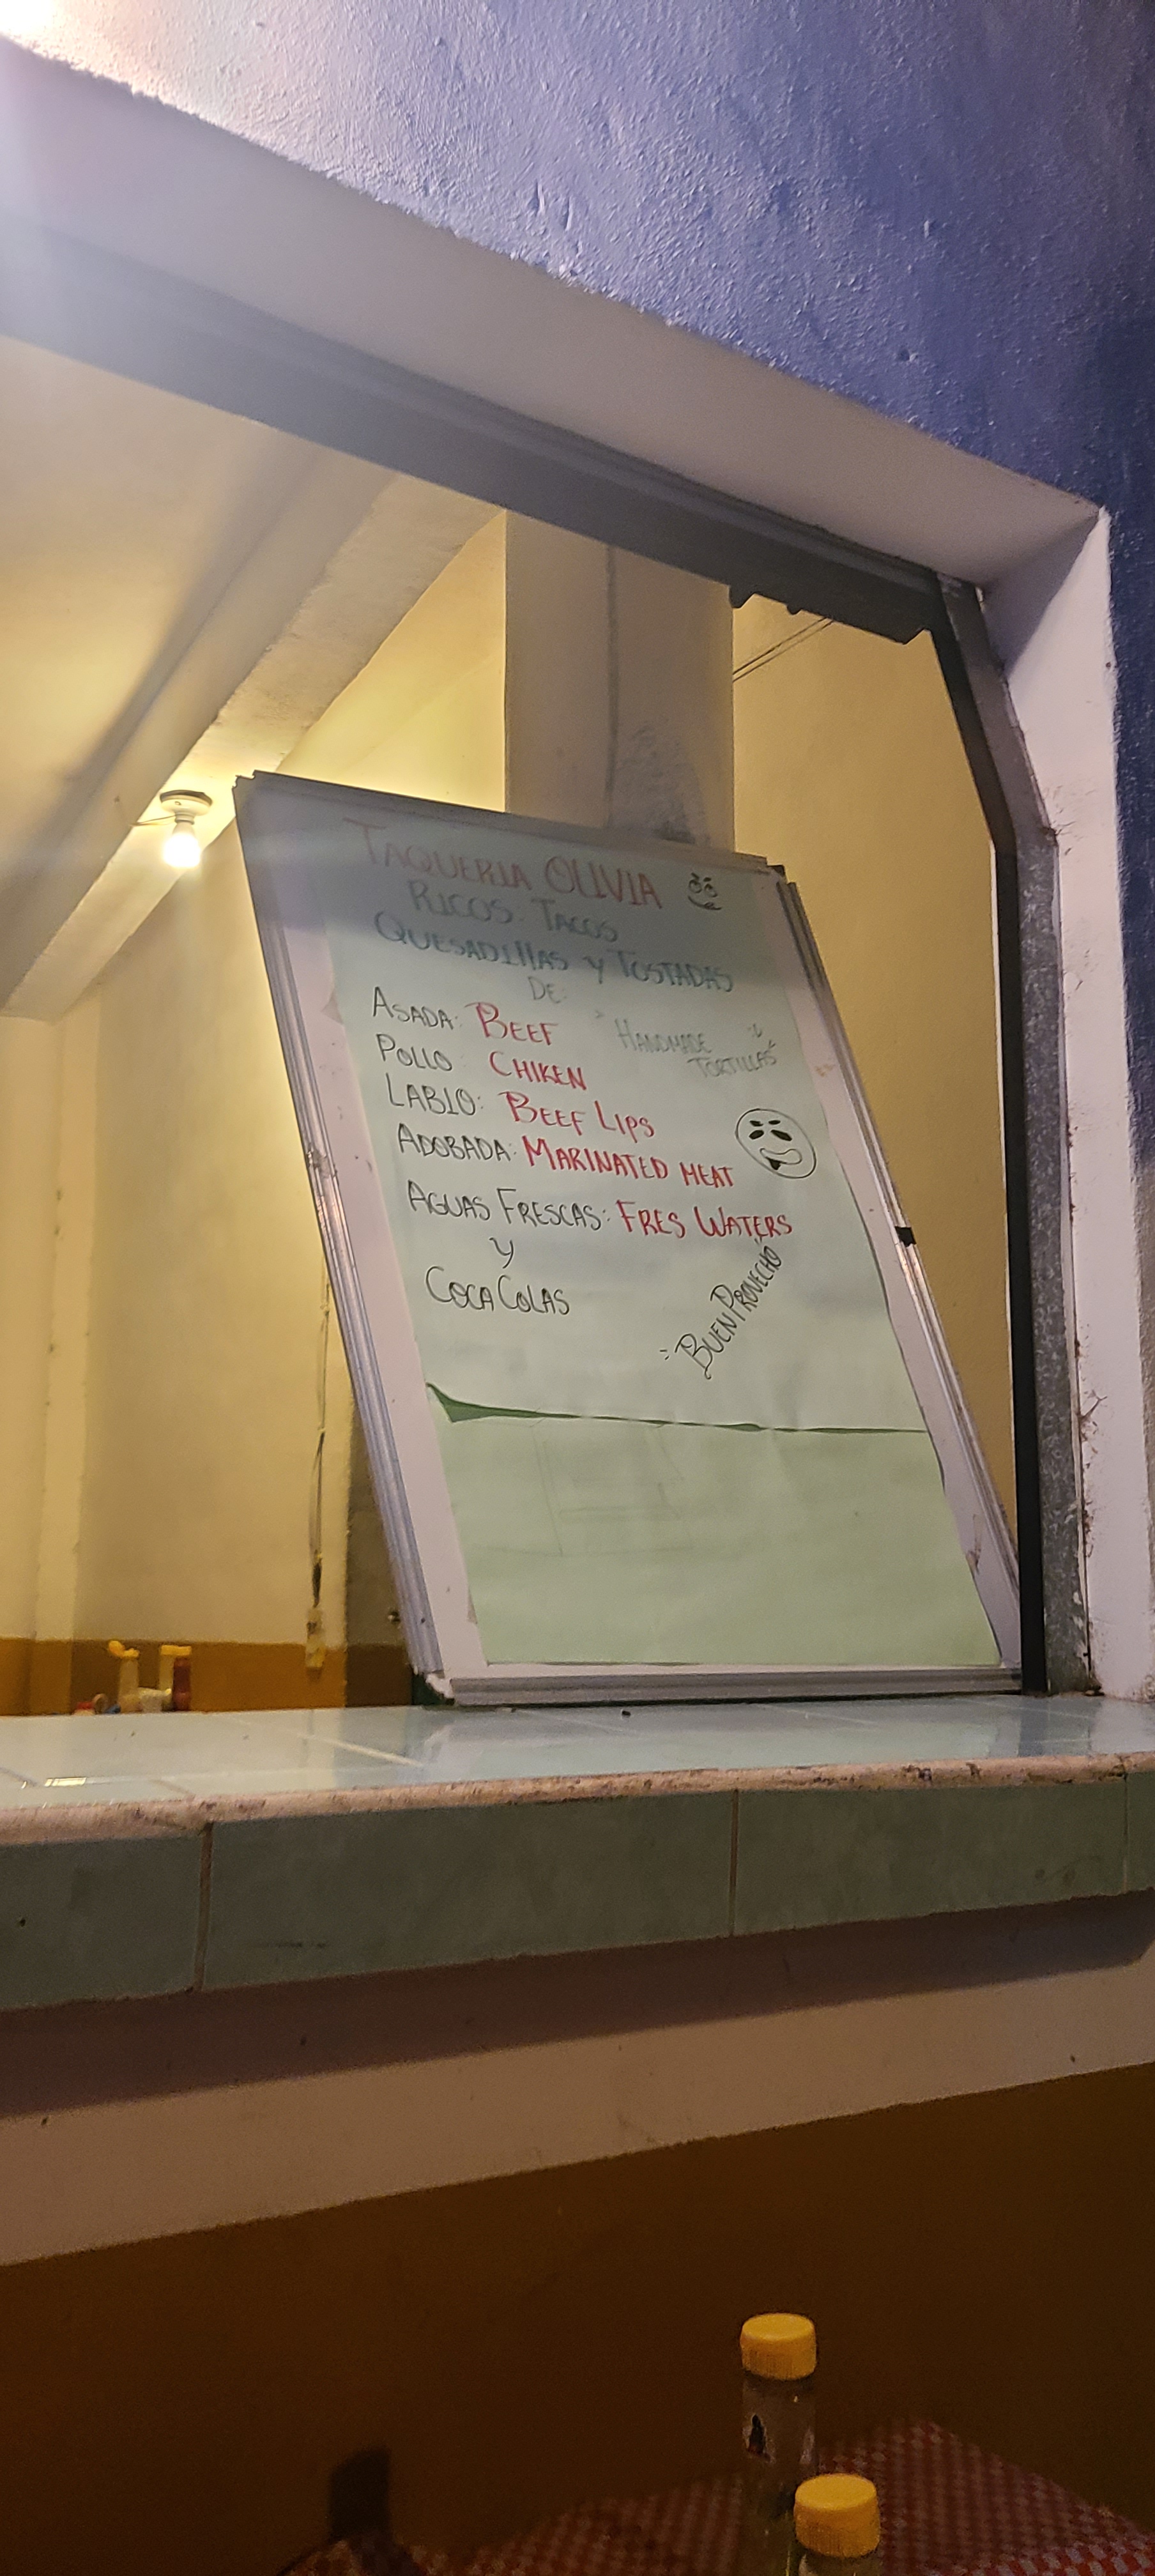 TAQUERIA OLIVIA
RICOS TACOS
QUESADILLAS Y TOSTADAS
DE:
ASADA: BEEF
HANDMADE
TORTILLAS
POLLO CHIKEN
LABIO: BEEF LIPS
ADOBADA: MARINATED MEAT
AGUAS FRESCAS: FRES WATERS
Y
COCA COLAS
BUEN PROVECHO